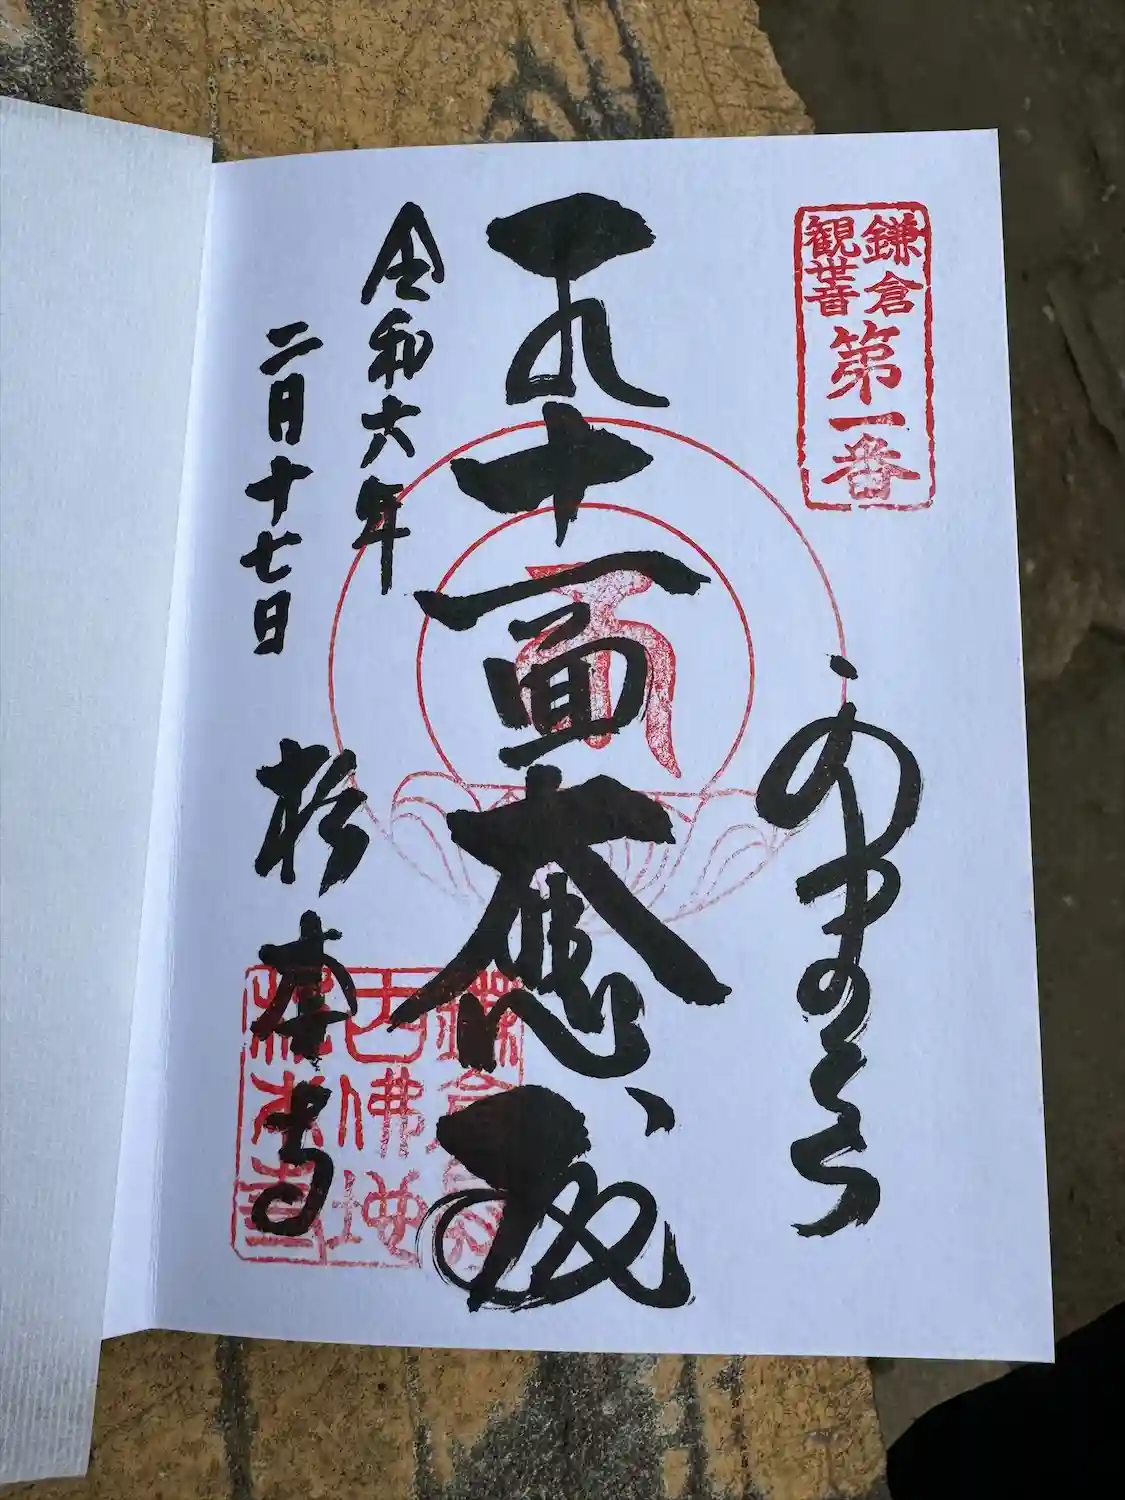 鎌倉
観世音
第一番
十一面大悲殿
令和六年
二月十七日
杉本寺
古佛地
杉本寺